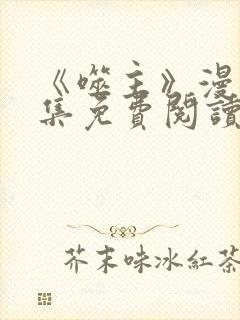 《噬主》漫
集免費閱讀
芥末味冰紅茶